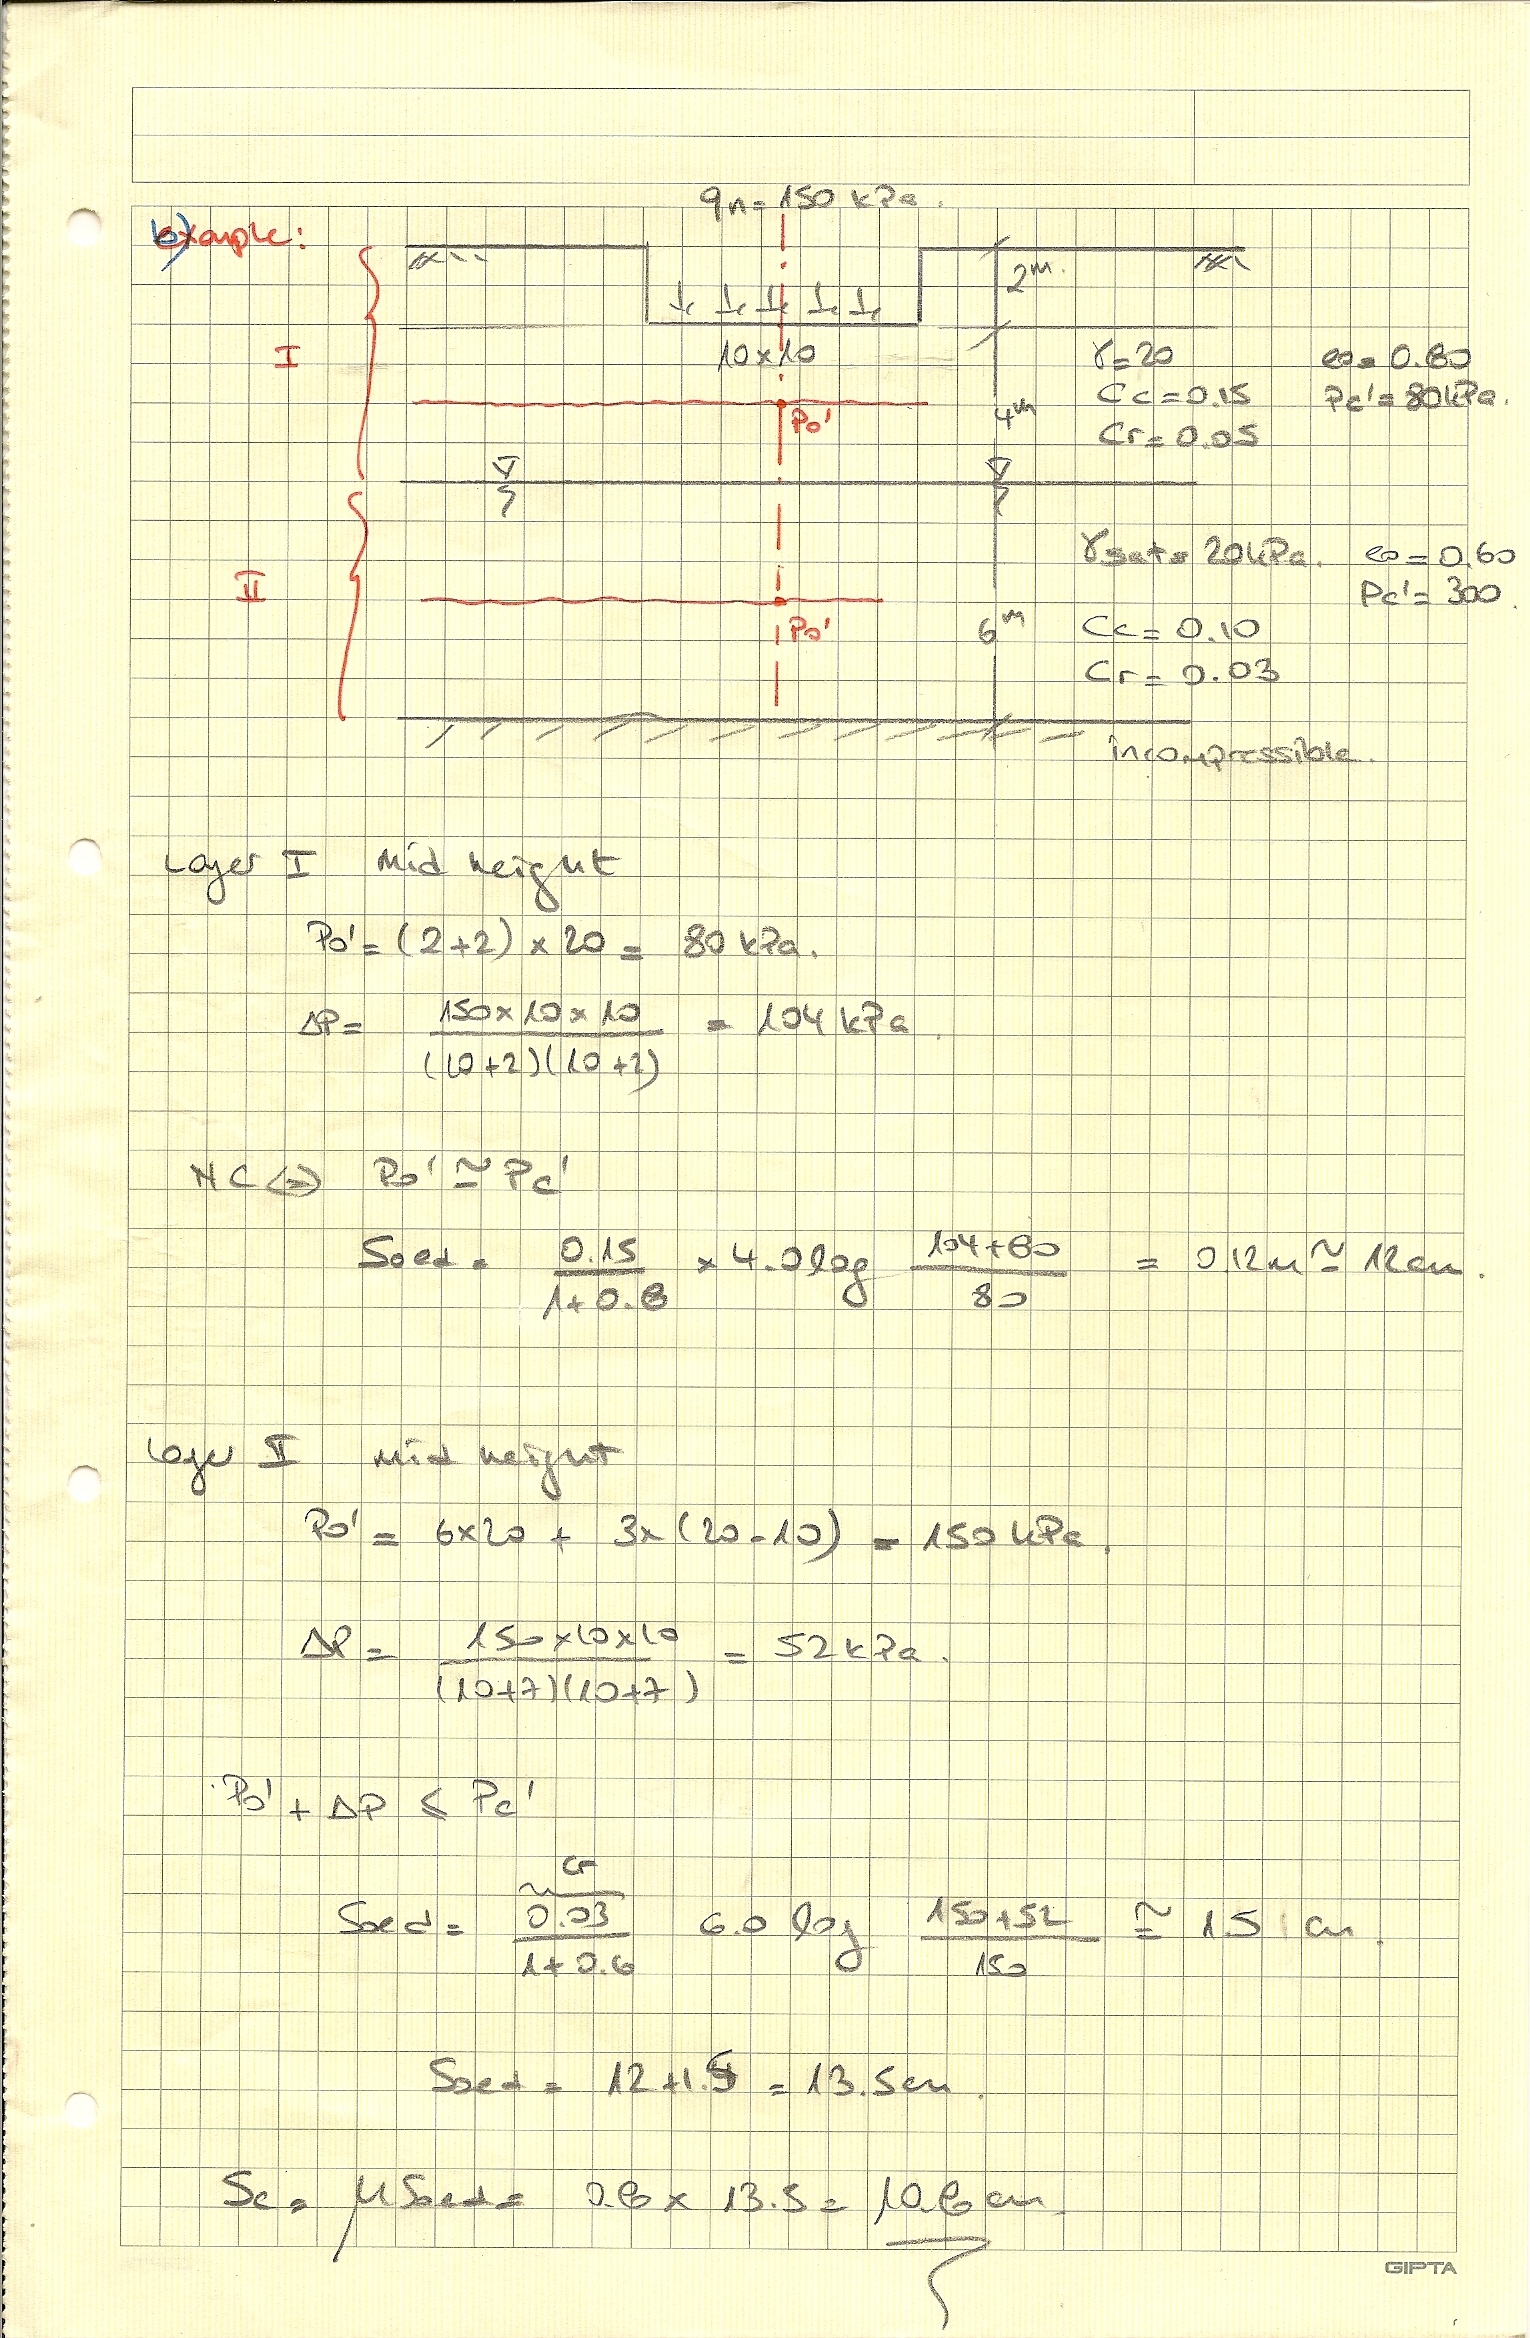 qn = 150 kPa.
b) example:
2m.
I
10x10
γ = 20 e0 = 0.80
Cc = 0.15 Pc' = 80 kPa.
4m
Po'
Cr = 0.05
γsat = 20 kPa. e0 = 0.60
Pc' = 300
II
Po'
6m
Cc = 0.10
Cr = 0.03
incompressible.
Layer I Mid height
Po' = (2+2) x 20 = 80 kPa.
ΔP = 150x10x10 / (10+2)(10+2) = 104 kPa.
NC ⇔ Po' ≅ Pc'
Soed = 0.15 / 1+0.8 x 4.0 log 104+80 / 80 = 0.12m ≅ 12cm.
Layer II Mid height
Po' = 6x20 + 3x(20-10) = 150 kPa.
ΔP = 150x10x10 / (10+7)(10+7) = 52 kPa.
Po' + ΔP ≤ Pc'
Cr
Soed = 0.03 / 1+0.6 6.0 log 150+52 / 150 ≅ 1.5 cm.
Soed = 12+1.5 = 13.5cm.
Sc = μ Soed = 0.8 x 13.5 = 10.8 cm.
GIPTA